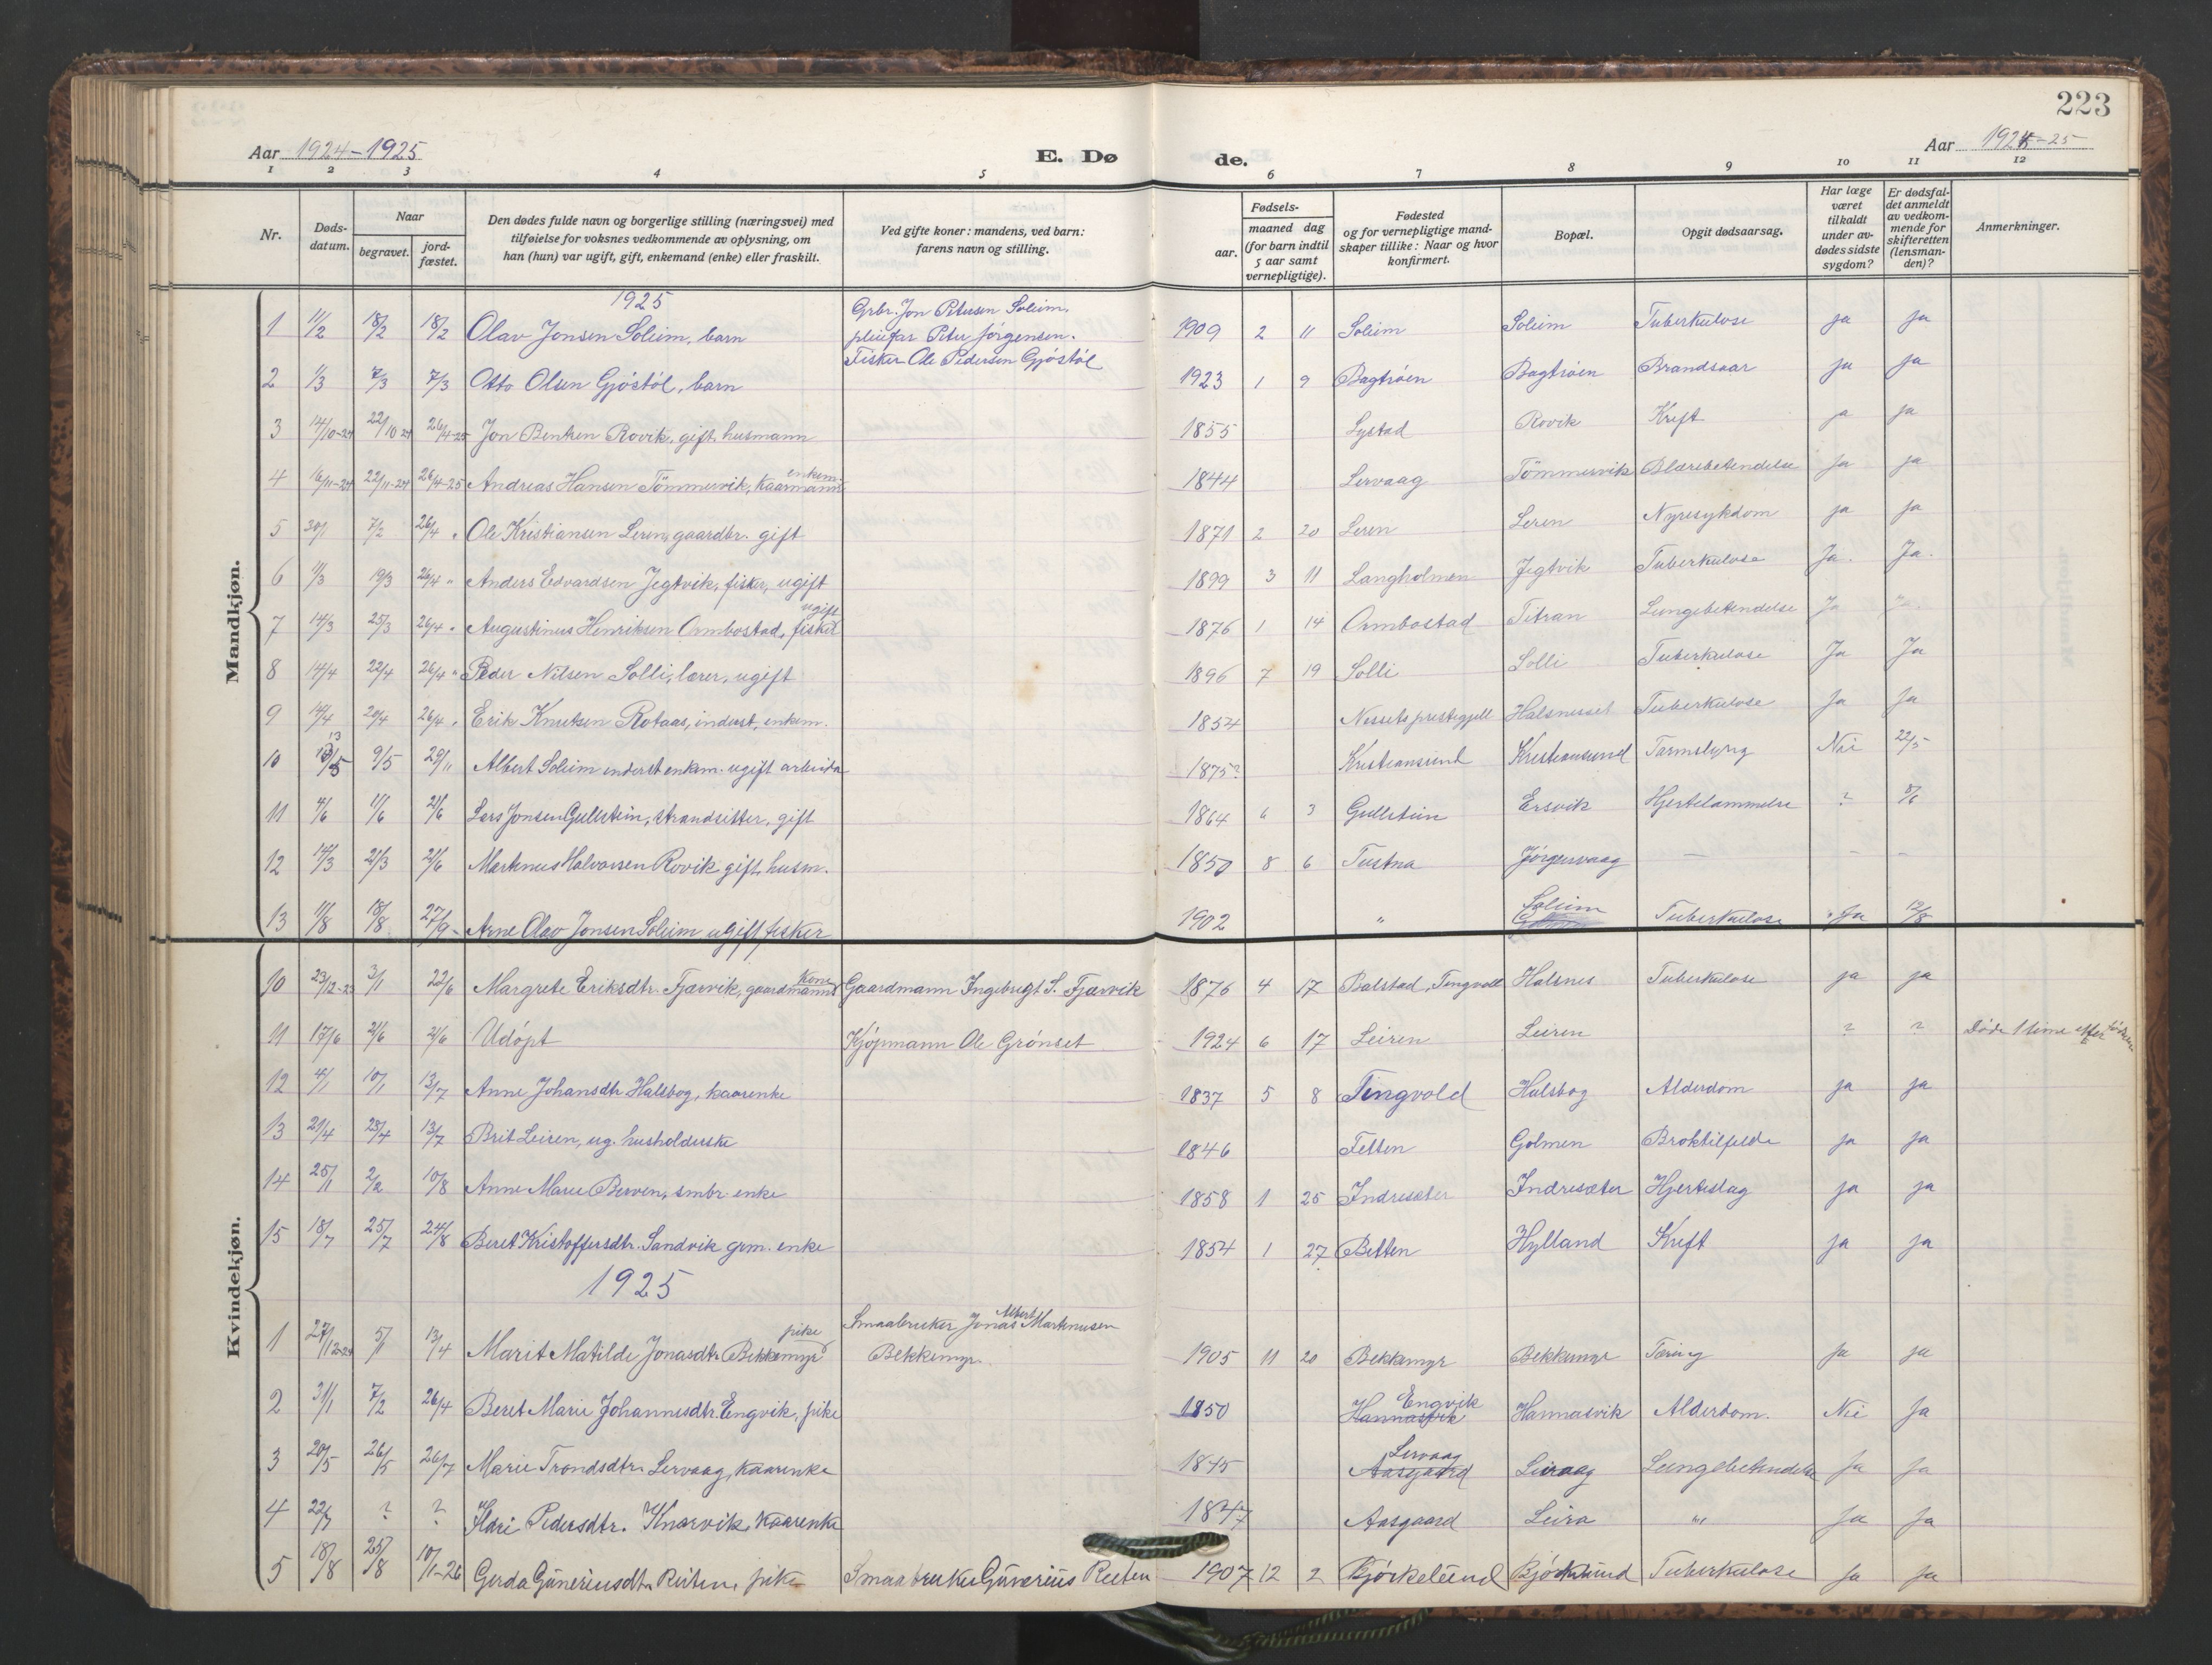 223
Aar 1924-1925
E. Dø de.
Aar 1924-25
1 2 3 4 5 6 7 8 9 10 11 12
Nr.
Døds-datum.
Naar
begravet.
jord-fæstet.
Den dødes fulde navn og borgerlige stilling (næringsvei) med
tilføielse for voksnes vedkommende av oplysning, om
han (hun) var ugift, gift, enkemand (enke) eller fraskilt.
Ved gifte koner: mandens, ved barn:
farens navn og stilling.
Fødsels-
aar.
maaned dag
(for barn indtil
5 aar samt
vernepligtige).
Fødested
og for vernepligtige mand-
skaper tillike: Naar og hvor
konfirmert.
Bopæl.
Opgit dødsaarsag.
Har læge
været
tilkaldt
under av-
dødes sidste
sygdom?
Er dødsfal-
det anmeldt
av vedkom-
mende for
skifteretten
(lensman-
den)?
Anmerkninger.
Mandkjøn.
1925
1 11/2 18/2 18/2 Olav Jonsen Soleim, barn Grbr. Jon Petersen Soleim, pleiefar Peter Jørgensen. 1909 2 11 Soleim Soleim Tuberkulose ja ja
2 1/3 7/3 7/3 Otto Olsen Gjøstøl, barn Fisker Ole Pedersen Gjøstøl 1923 1 9 Bagtrøen Bagtrøen Brandsaar ja ja
3 14/10-24 22/10 24 26/4-25 Jon Bentsen Rovik, gift, husmann 1855 Lystad Rovik Kreft ja ja
4 16/11-24 22/11-24 26/4-25 Andreas Hansen Tømmervik, kaarmann enkem. 1844 Lervaag Tømmervik Blærebetendelse ja ja
5 30/1 7/2 26/4 " Ole Kristiansen Leren, gaardbr. gift 1871 2 20 Leren Leren Nyresykdom ja ja
6 11/3 19/3 26/4 " Anders Edvardsen Jegtvik, fisker, ugift 1899 3 11 Langholmen Jegtvik Tuberkulose Ja. Ja.
7 14/3 25/3 26/4 " Augustinus Henriksen Ormbostad, fisker ugift 1876 1 14 Ormbostad Titran Lungebetendelse Ja Ja.
8 14/4 22/4 26/4 " Peder Nilsen Solli, lærer, ugift 1896 7 19 Solli Solli Tuberkulose Ja Ja
9 14/4 20/4 26/4 " Erik Knutsen Rotaas, inderst, enkem. 1854 Nessets prestegjell Halsnesset Tuberkulose Ja Ja
10 13/5 9/5 29/11 Albert Soleim inderst enkem. ugift arbeider 1875? Kristiansund Kristiansund Tarmslyng Nei 22/5
11 4/6 11/6 21/6 Lars Jonsen Gullstein, strandsitter, gift 1864 6 3 Gullstein Ersvik Hjertelammelse ? 8/6
12 14/3 21/3 21/6 Martenus Halvorsen Rovik gift husm. 1850 8 6 Tustna Jørgenvaag — — —
13 11/8 18/8 27/9 - Arne Olav Jonsen Soleim ugift fisker 1902 " Soleim Tuberkulose Ja 12/8
Kvindekjøn.
10 23/12-23 3/1 22/6 Margrete Eriksdtr. Fjærvik, gaardmanns kone Gaardmann Ingebregt S. Fjærvik 1876 4 17 Balstad, Tingvoll Halsnes Tuberkulose ja ja
11 17/6 21/6 21/6 Udøpt Kjøpmann Ole Grønset 1924 6 17 Leiren Leiren ? ? Døde 1 time efter fødselen
12 4/1 10/1 13/7 Anne Johansdtr Halsbog, kaarenke 1837 5 8 Tingvold Halsbog Alderdom ja ja
13 21/4 28/4 13/7 Brit Leiren, ug. husholderske 1846 Fetten Golmen Broktilfelde ja ja
14 25/1 2/2 10/8 Anne Marie Berven, smbr. enke 1858 1 25 Indresæter Indresæter Hjerteslag ja ja
15 18/7 25/7 24/8 Beret Kristoffersdtr. Sandvik grm. enke 1854 1 27 Betten Hylland Kreft ja ja
1925
1 27/12-24 5/1 13/4 Marit Matilde Jonasdtr. Bekkemyr pike Smaabruker Jonas Albert Martinusen Bekkemyr. 1905 11 20 Bekkemyr Bekkemyr Tæring Ja ja
2 31/1 7/2 26/4 Beret Marie Johannesdtr. Engvik, pike 1850 Engvik Hannasvik Hannasvik Alderdom. Nei Ja
3 20/5 26/5 26/7 Marie Trondsdtr. Lervaag, kaarenke 1845 Lervaag Aasgaard Leivaag Lungebetendelse Ja Ja
4 22/7 ? ? Ildri Pedersdtr. Knarvik, kaarenke 1847 Aasgaard Leira " Ja Ja
5 18/8 25/8 10/1-26 Gerda Guneriusdtr. Reiten, pike Smaabruker Gunerius Reiten 1907 12 2 Bjørkelund Bjørklund Tuberkulose Ja Ja